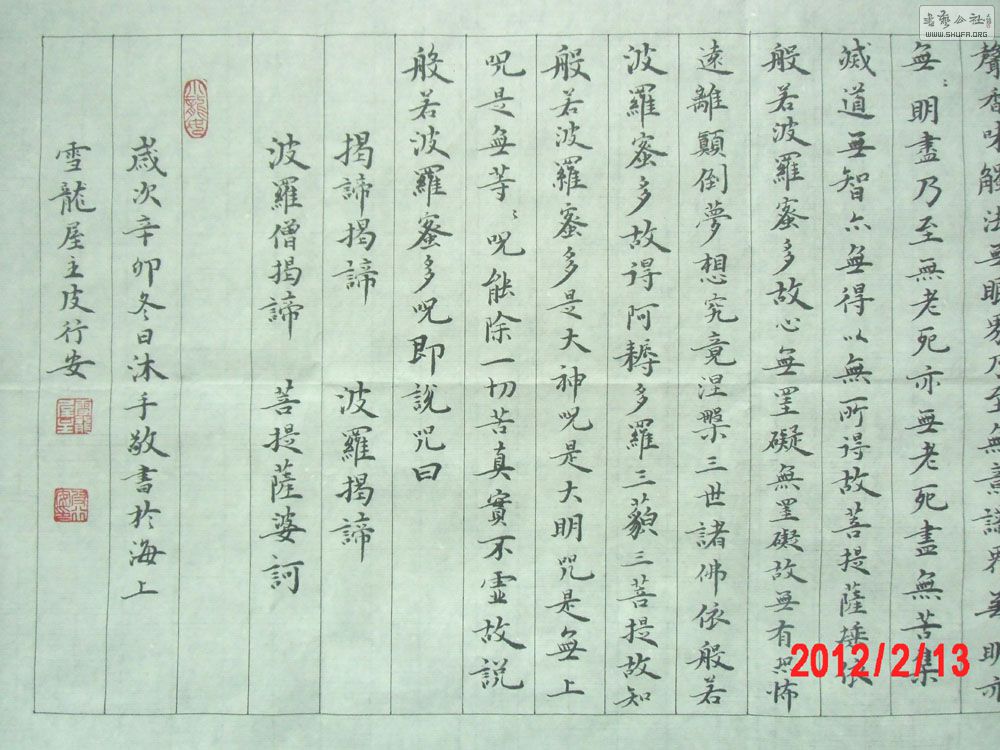 聲香味觸法無眼界乃至無意識界無明亦
無〻明盡乃至無老死亦無老死盡無苦集
滅道無智亦無得以無所得故菩提薩埵依
般若波羅蜜多故心無罣礙無罣礙故無有恐怖
遠離顛倒夢想究竟涅槃三世諸佛依般若
波羅蜜多故得阿耨多羅三藐三菩提故知
般若波羅蜜多是大神咒是大明咒是無上
咒是無等〻咒能除一切苦真實不虛故說
般若波羅蜜多咒即說咒曰
揭諦揭諦 波羅揭諦
波羅僧揭諦 菩提薩婆訶
歲次辛卯冬日沐手敬書於海上
雪龍屋主皮行安
書藝公社
WWW.SHUFA.ORG
2012/2/13